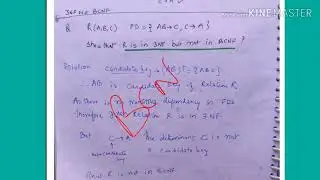 3NF NE BCNF
MADE WITH
KINEMASTER
Q R(A,B,C) FD = { AB→C, C→A }
Show that R is in 3NF but not in BCNF
Solution Candidate key → (AB)+ = {ABC}
AB is candidate key of Relation R
As there is no transitive dependency in FDs
therefore, Relation R is in 3NF
But C→A The determinant C is not
a candidate key
R is not in BCNF